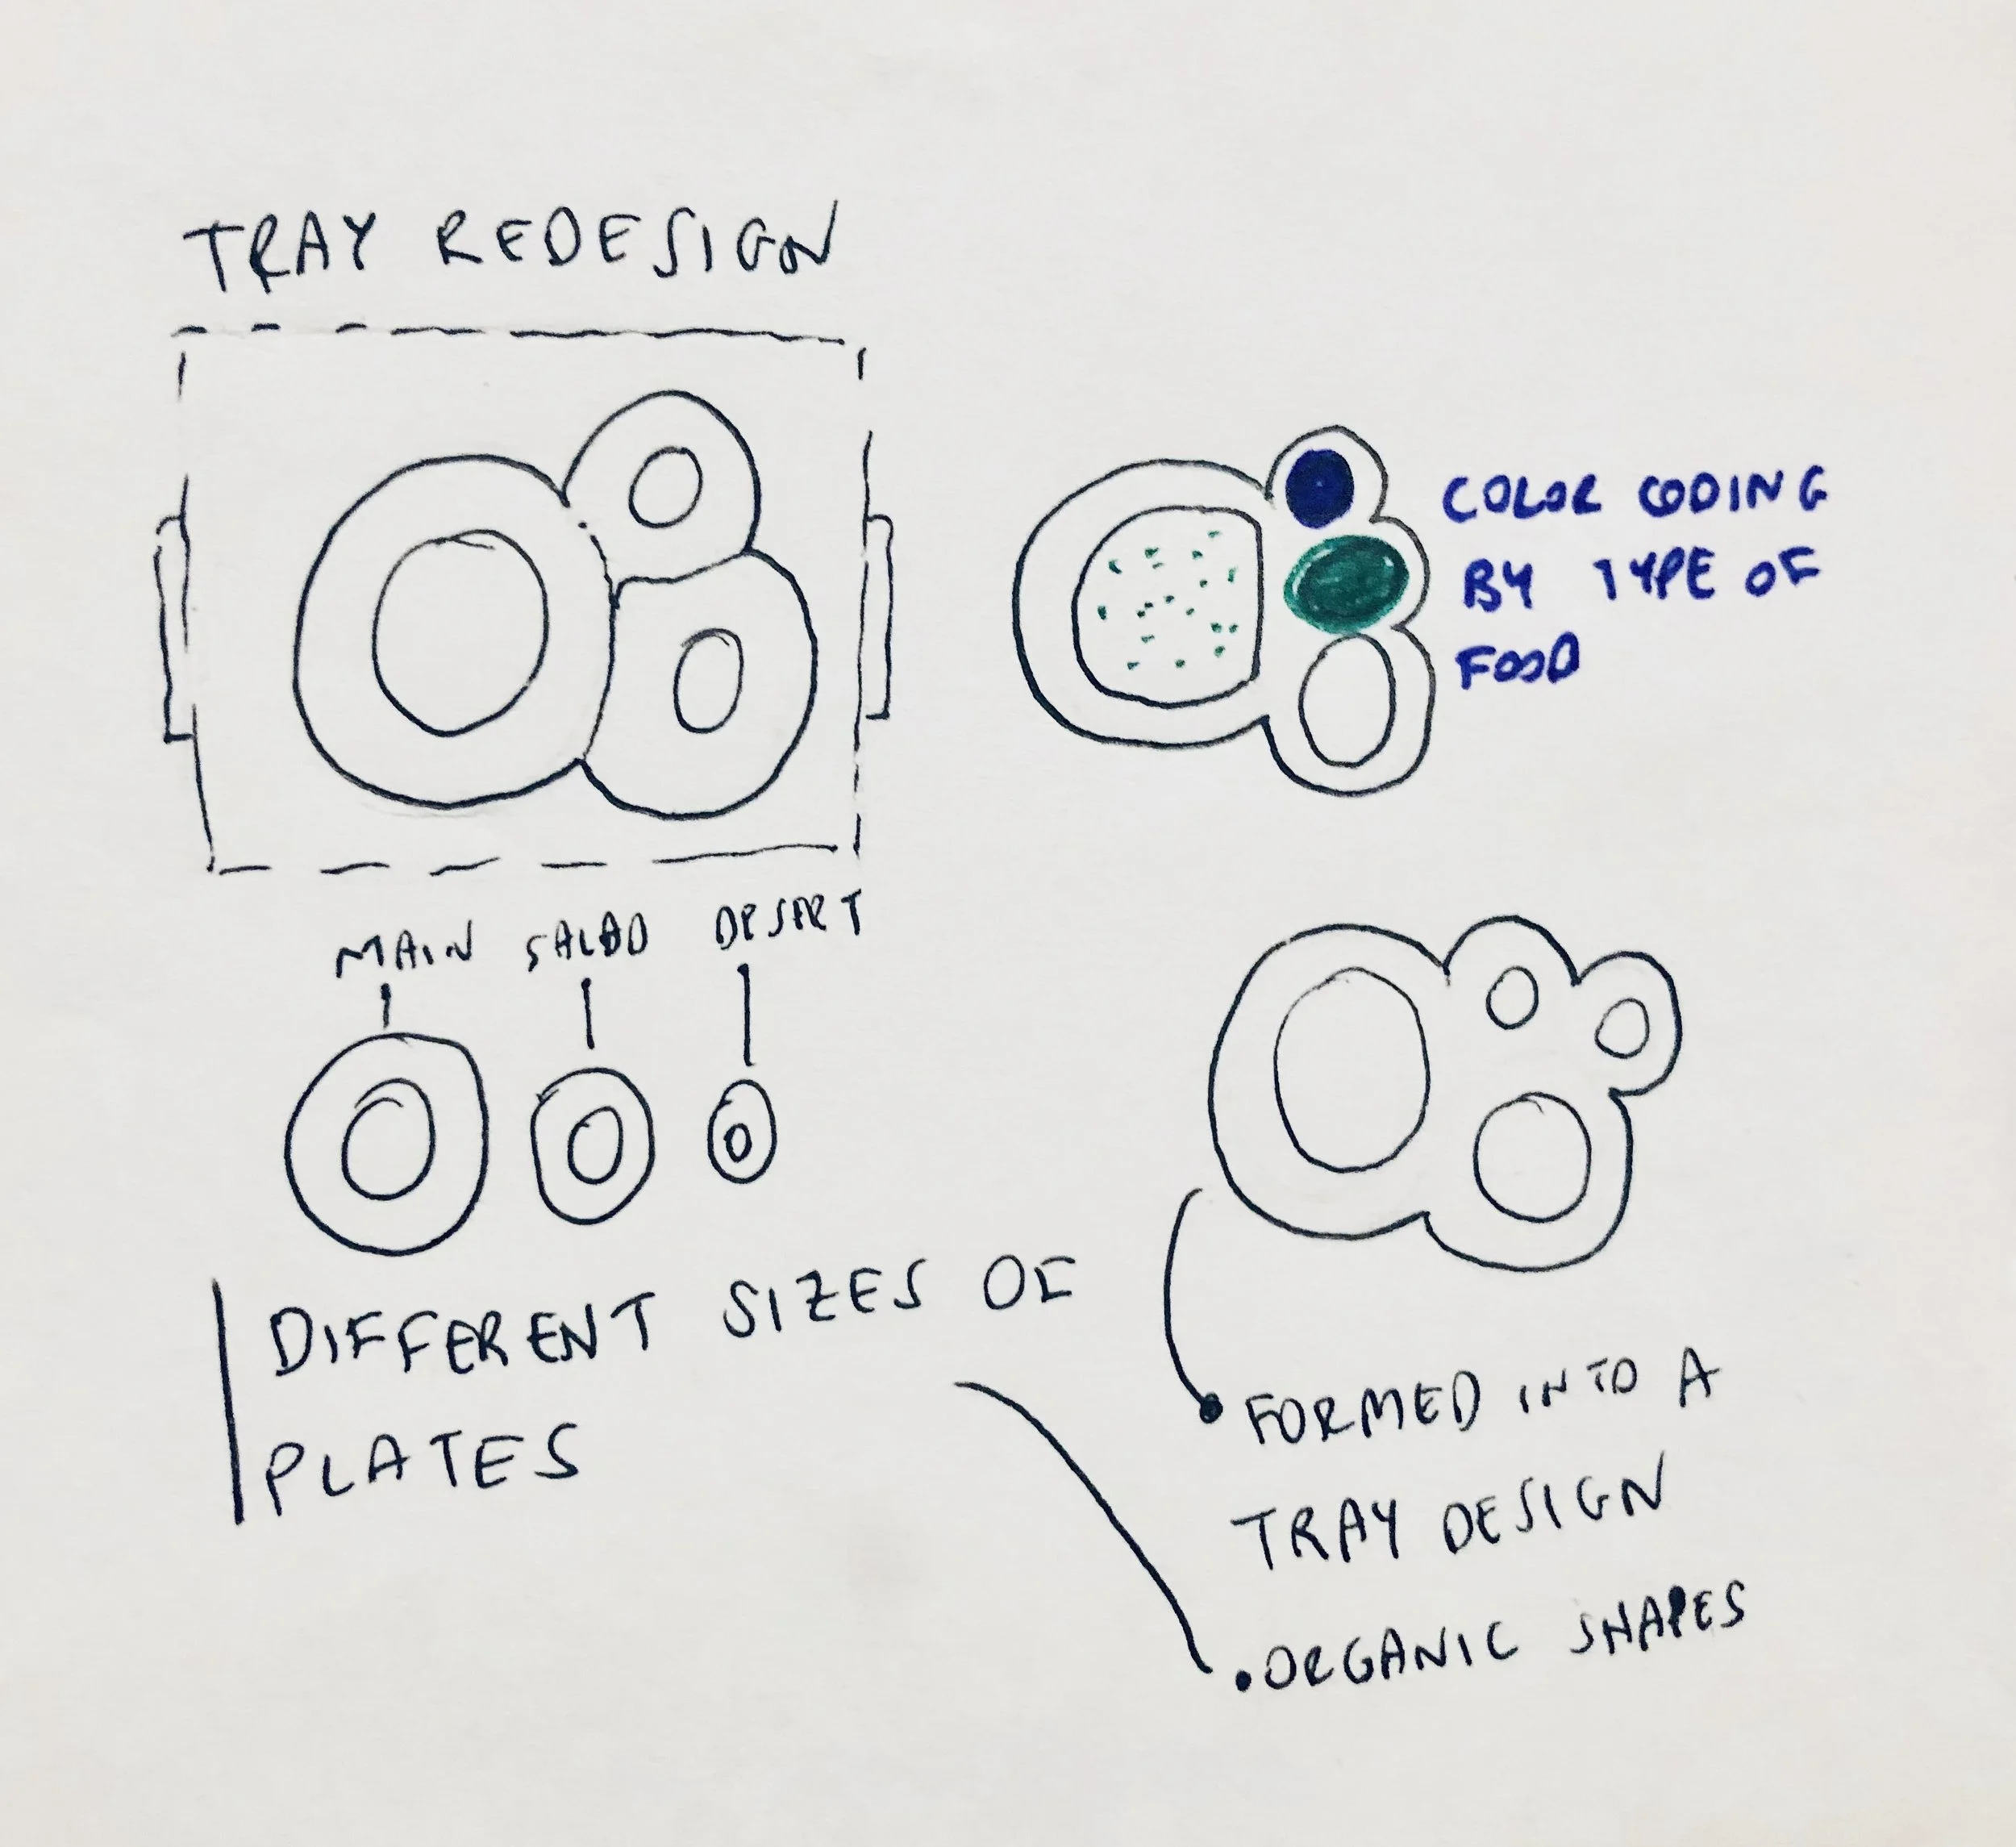 TRAY REDESIGN
COLOR CODING
BY TYPE OF
FOOD
MAIN SALAD DESERT
DIFFERENT SIZES OF
PLATES
FORMED INTO A
TRAY DESIGN
ORGANIC SHAPES